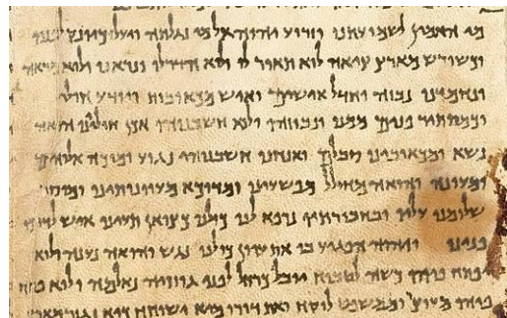 מי האמין לשמועתנו וזרוע יהוה אל מי נגלתה ויעל כיונק לפניו
וכשורש מארץ ציה לוא תואר לו ולוא הדר לו ונראנו ולוא מראה
ונחמדנו נבזה וחדל אישים ואיש מכאובות ויודע חולי
וכמסתיר פנים ממנו ונבוזהו ולוא חשבנוהו אכן חוליינו הואה
נשא ומכאובינו סבלם ואנחנו חשבנוהו נגוע ומוכה אלוהים
ומעונה והואה מחולל מפשעינו ומדוכא מעוונותינו ומוסר
שלומנו עליו ובחבורתיו נרפא לנו כולנו כצואן תעינו איש לדרכו
פנינו ויהוה הפגיע בו את עוון כולנו נגש והואה נענה ולוא
יפתח פיהו כשה לטבוח יובל כרחל לפני גוזזיה נאלמה ולוא פתח
פיהו מעוצר וממשפט לוקח ואת דורו מיא ישוחח כיא נגזר מארץ